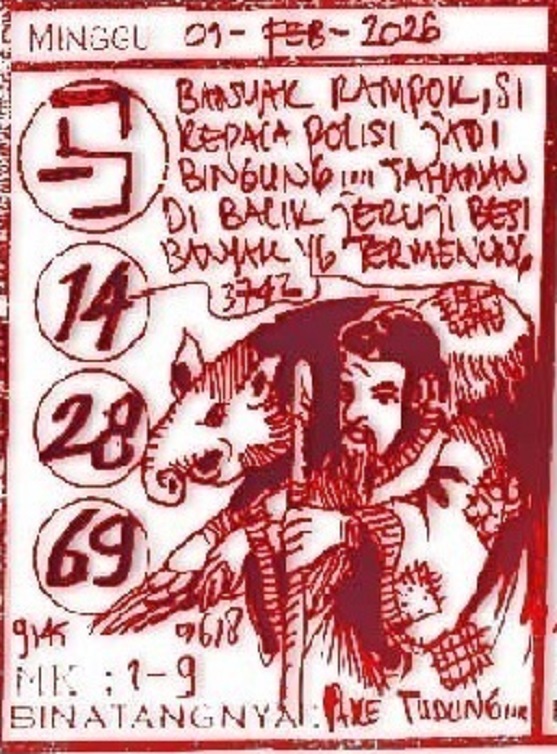 MINGGU 01-FEB-2026
BANYAK RAMPOK, SI
KEPALA POLISI JADI
BINGUNG.... TAHANAN
DI BALIK JERUJI BESI
BANYAK YG TERMENUNG
3742
14
28
69
9618
MK : 1-9
BINATANGNYA : PAKE TUDUNG...